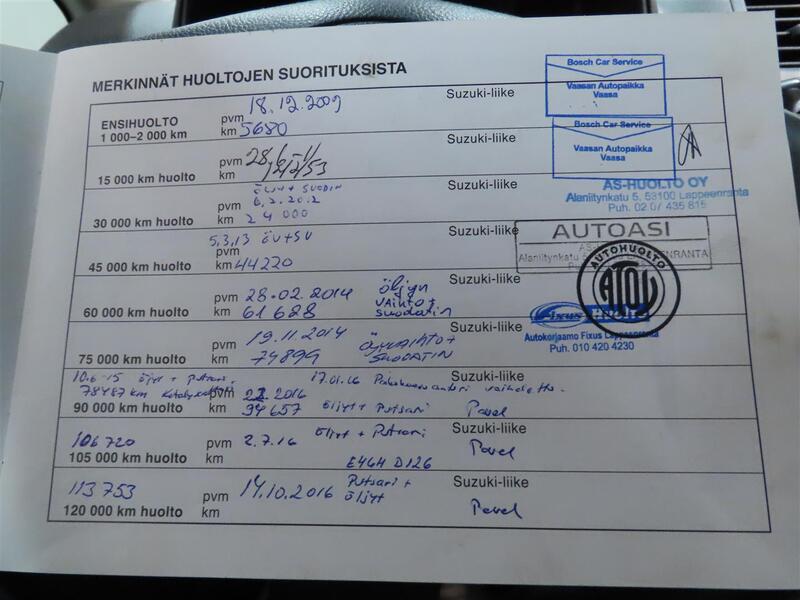 MERKINNÄT HUOLTOJEN SUORITUKSISTA
ENSIHUOLTO
1 000–2 000 km
pvm 18.12.2009
km 5680
Suzuki-liike
Bosch Car Service
Vaasan Autopaikka
Vaasa
15 000 km huolto
pvm
km
Suzuki-liike
Bosch Car Service
Vaasan Autopaikka
Vaasa
30 000 km huolto
ÖLJY + SUODIN
pvm
km 24 000
Suzuki-liike
AS-HUOLTO OY
Alaniitynkatu 5, 53100 Lappeenranta
Puh. 02 07 435 815
45 000 km huolto
5.3.13 ÖV+SV
pvm
km 44220
Suzuki-liike
AUTOASI
Alaniitynkatu
AUTOHUOLTO
60 000 km huolto
pvm 28.02.2014
km 61628
Öljyn
vaihto +
suodatin
Suzuki-liike
Fixus HUOLTO
Autokorjaamo Fixus Lappeenranta
Puh. 010 420 4230
75 000 km huolto
pvm 19.11.2014
km 74899
SUODATIN
Suzuki-liike
10.6-15 Öljyt + Putsari.
78487 km
17.01.16
vaihdettu.
90 000 km huolto
pvm 2016
km 94657
Öljyt + Putsari
Suzuki-liike
Pavel
106720
105 000 km huolto
pvm 2.7.16
km
Öljyt + Putsari
E464 D126
Suzuki-liike
Pavel
113 753
120 000 km huolto
pvm 14.10.2016
km
Putsari +
öljyt
Suzuki-liike
Pavel